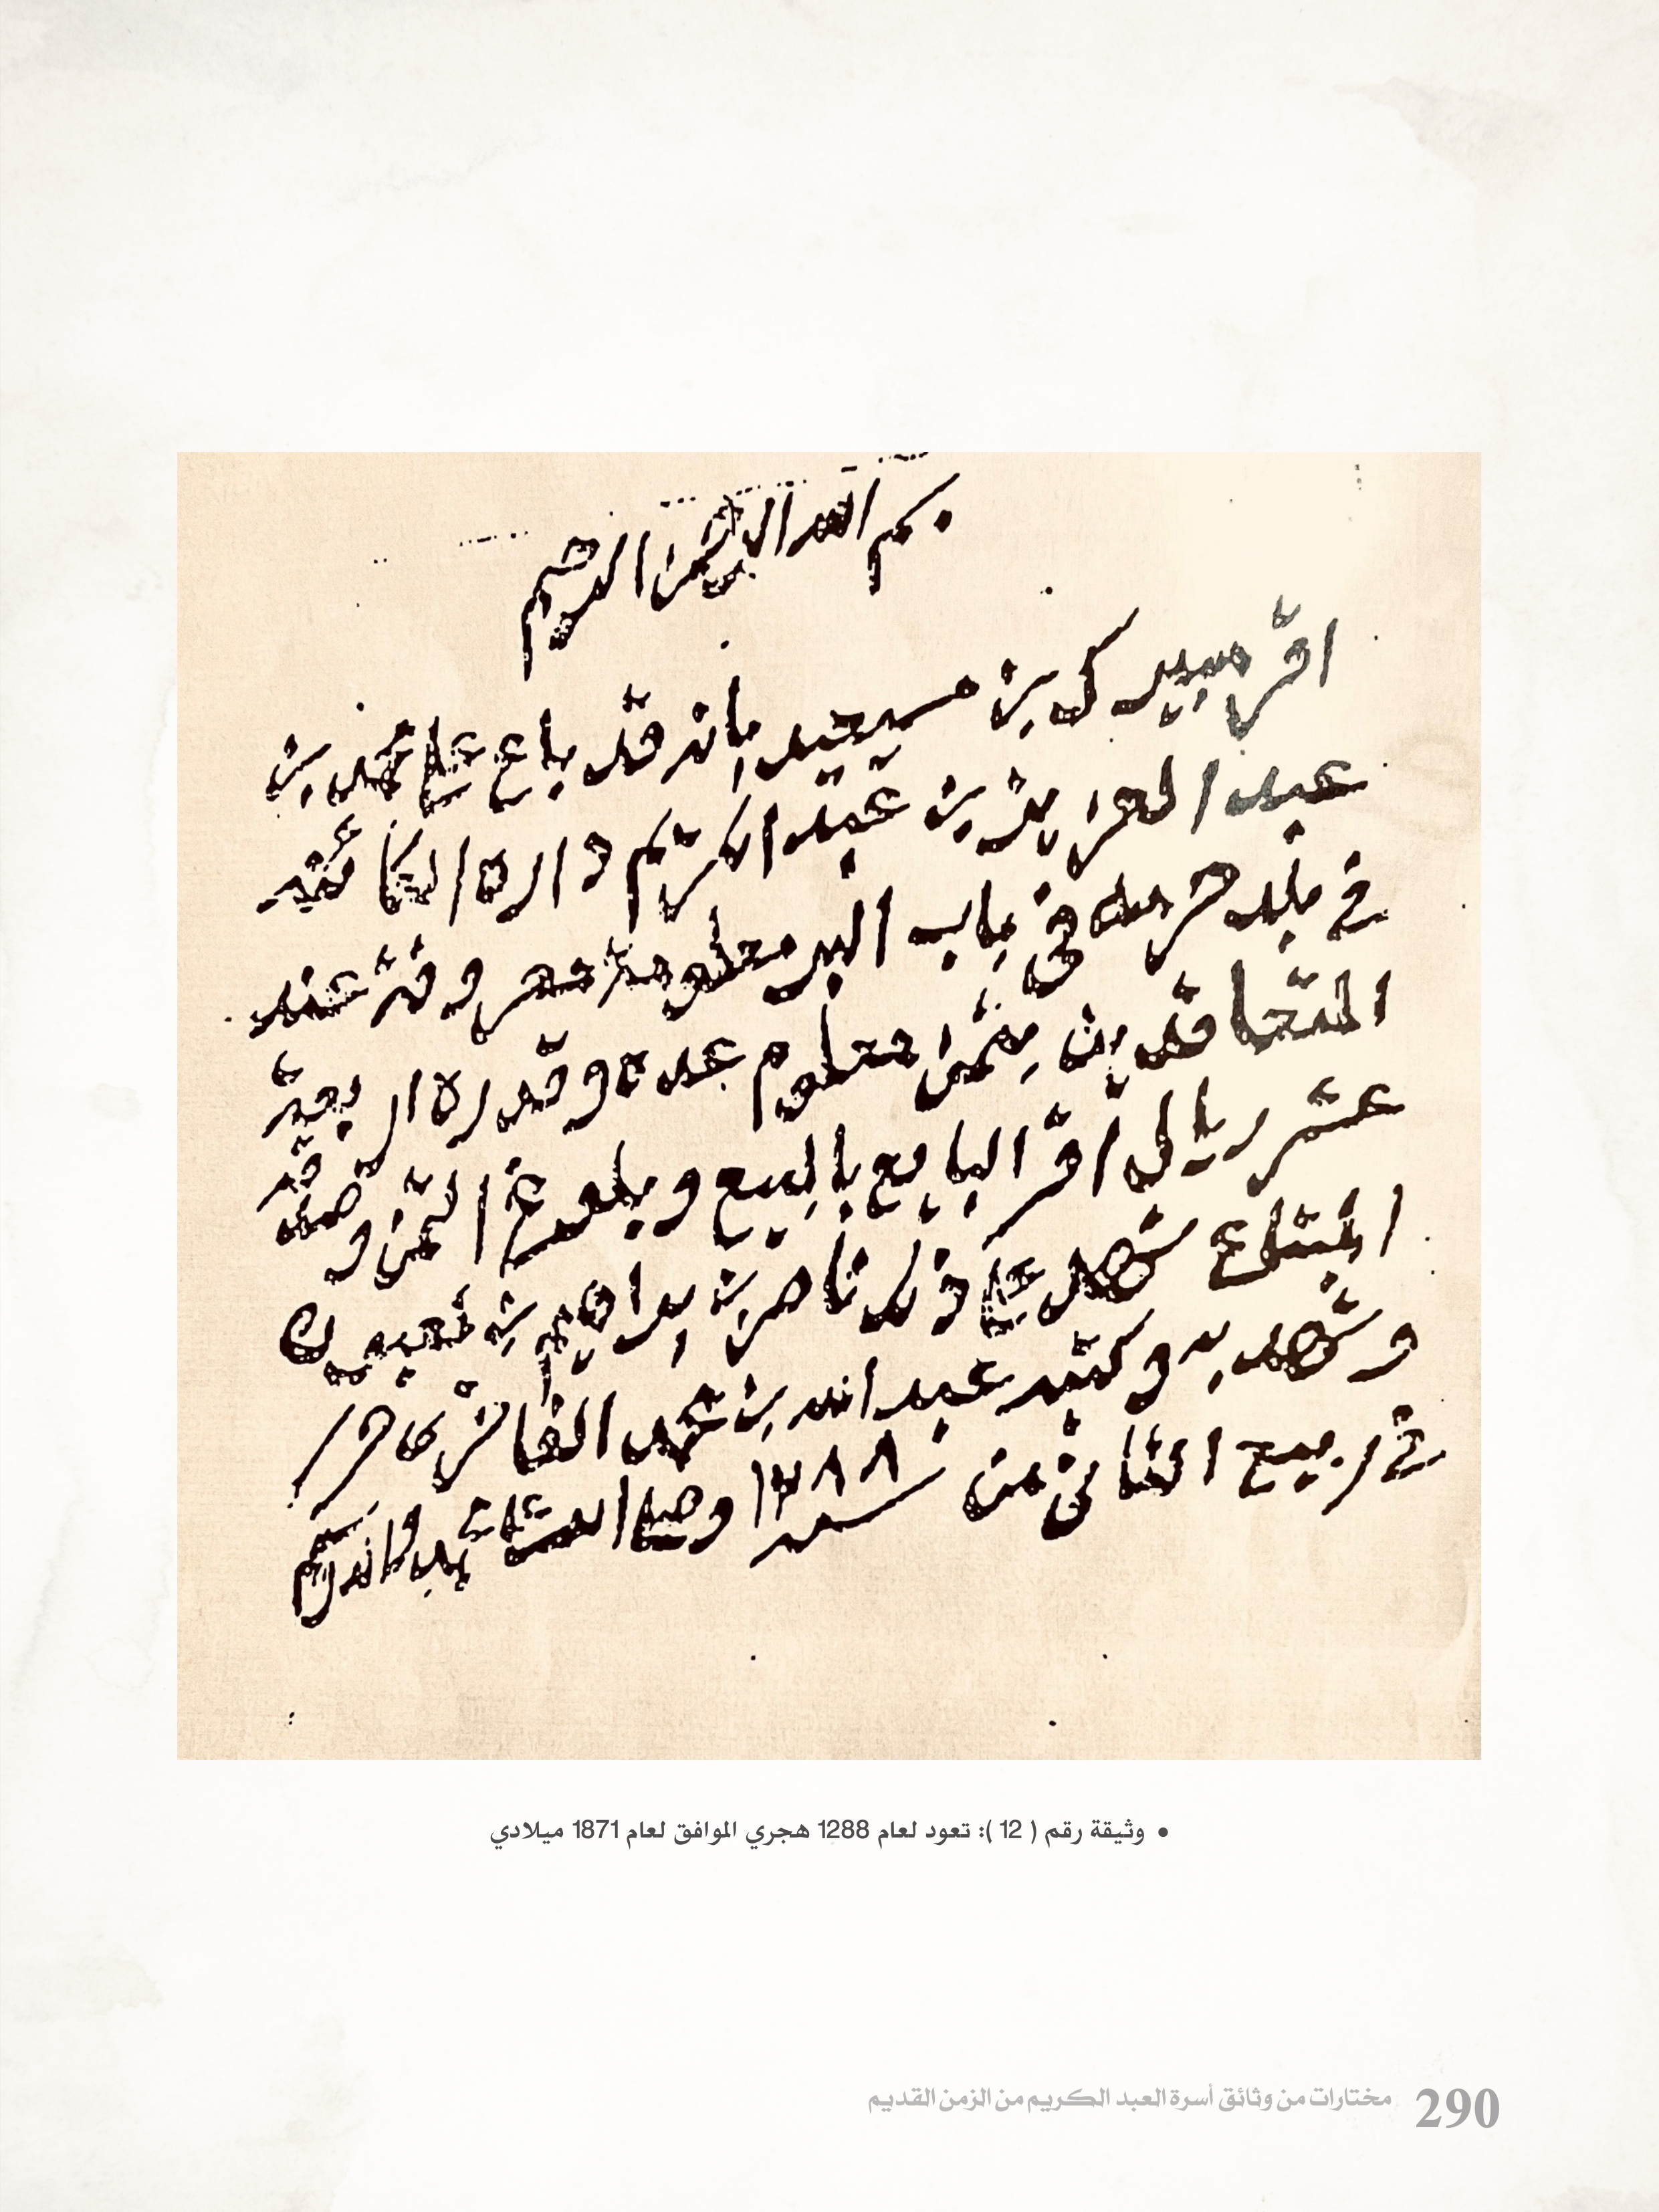 بسم الله الرحمن الرحيم
اقر سيد ك بن مسيعيد بانه قد باع على محمد بن
عبد العزيز بن عبد الكريم داره الكائنه
في بلد حرمه في باب البر معلومة معروفة عند
المتعاقدين بثمن معلوم عدة وقدره اربعة
عشر ريال اقر البايع بالبيع وبلوغ الثمن و قد
ابتاع شهد على ذلك ناصر بن براهيم بن
وشهد به وكتبه عبد الله بن محمد الفا حر
في ربيع الثاني من سنة ١٢٨٨ وصلى الله على محمد واله وسلم
• وثيقة رقم ( 12 ): تعود لعام 1288 هجري الموافق لعام 1871 ميلادي
290 مختارات من وثائق أسرة العبد الكريم من الزمن القديم